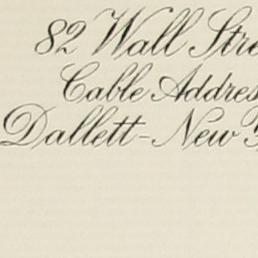 82 Wall Stre
Cable Addres
Dallett-New Y